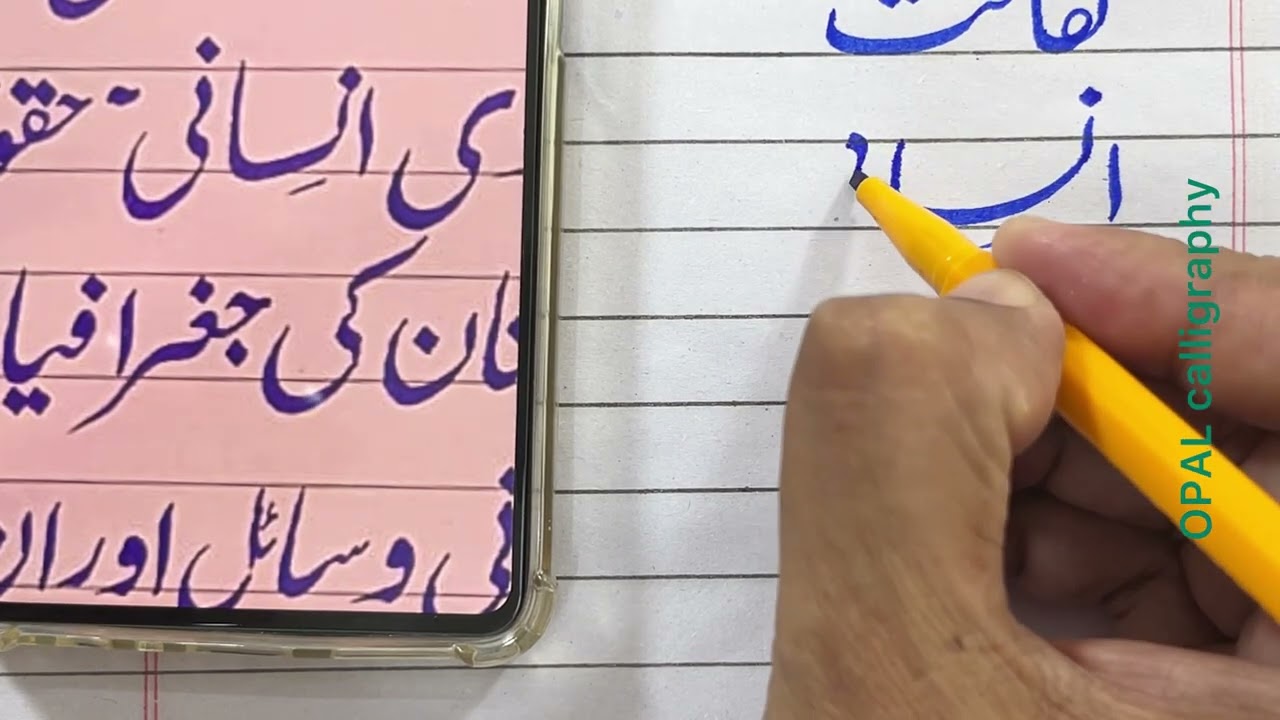 ی انسانی حقو
ان کی جغرافیا
نی وسائل اور ان
ثقافت
انسا
OPAL calligraphy